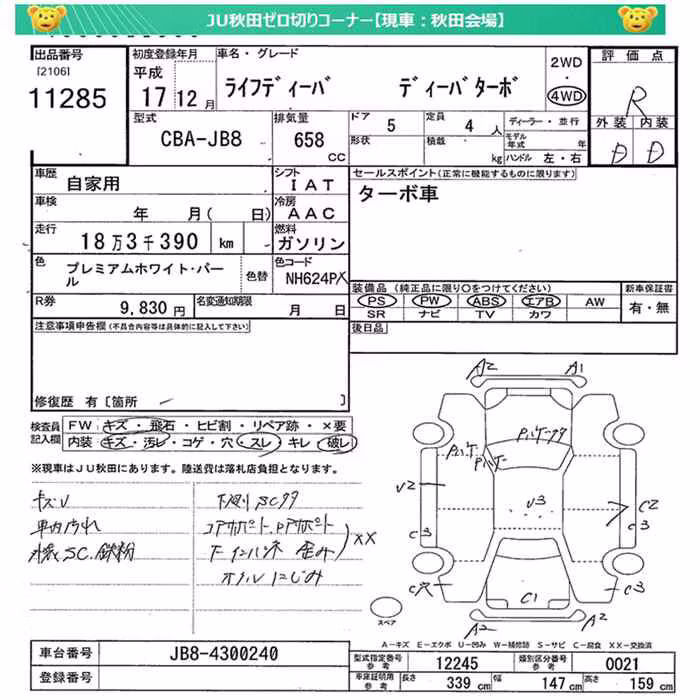 JU秋田ゼロ切りコーナー【現車:秋田会場】
出品番号
[2106]
11285
初度登録年月
平成
17 12月
車名・グレード
ライフディーバ ディーバターボ
2WD
・
4WD
評価点
R
外装 内装
D D
型式
CBA-JB8
排気量
658 CC
ドア 5
形状
定員 4 人
積載 kg
ディーラー・並行
モデル年式 年
ハンドル 左・右
車歴
自家用
シフト
IAT
車検
年 月( 日)
冷房
AAC
走行
18万3千390 km
燃料
ガソリン
色
プレミアムホワイト・パール
色替
色コード
NH624P
R券
9,830円
名変通知期限
月 日
セールスポイント(正常に機能するものに限ります)
ターボ車
装備品(純正品に限り○をつけてください)
PS PW ABS エアB AW
SR ナビ TV カワ
新車保証書
有・無
後日品
注意事項申告欄(不具合内容等は具体的に記入して下さい)
修復歴 有[箇所 ]
検査員記入欄
FW キズ・飛石・ヒビ割・リペア跡・×要
内装 キズ・汚レ・コゲ・穴・スレ・キレ・破レ
※現車はJU秋田にあります。陸送費は落札店負担となります。
キズU
車内汚れ
外装SC.鉄粉
下廻りSCササ
コアサポート.Rアサポート
F インパネ 歪み
XX
オイルにじみ
A2 A1
Pパケ
Pパケ
U2
U3
C2
C3
C3
C穴
C1
C3
A2
A2
スペア
A-キズ E-エクボ U-凹み W-補修跡 S-サビ C-腐食 XX-交換済
車台番号
JB8-4300240
登録番号
型式指定番号 参考
12245
類別区分番号 参考
0021
車庫証明用 参考
長さ 339 cm
幅 147 cm
高さ 159 cm